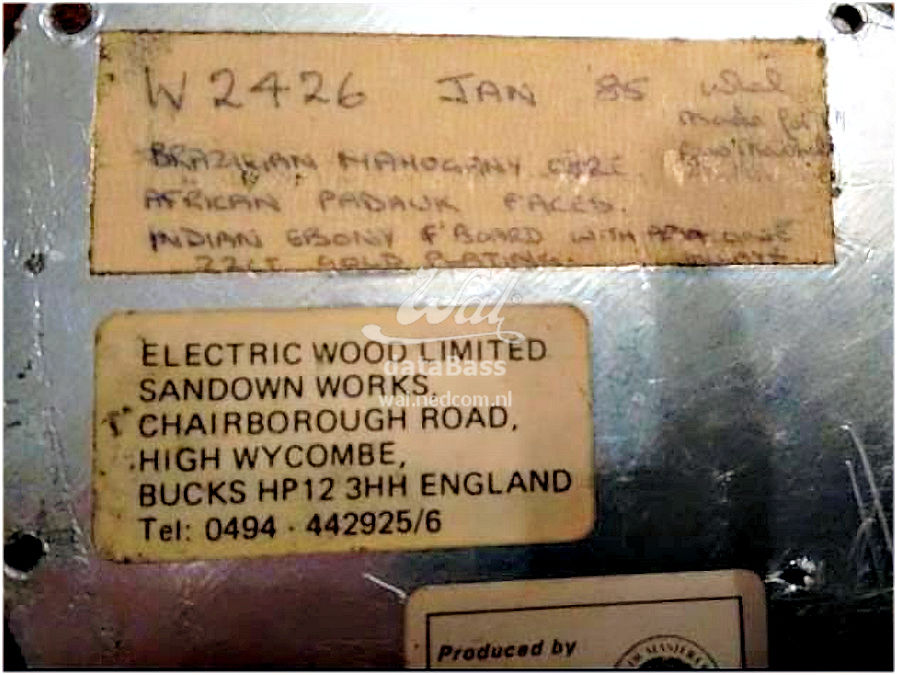 W2426 JAN '85 Wal
made for
BRAZILIAN MAHOGANY CORE
AFRICAN PADAUK FACES.
INDIAN EBONY F'BOARD WITH
22CT GOLD PLATING.
Wal®
dataBass
wal.nedcom.nl
ELECTRIC WOOD LIMITED
SANDOWN WORKS,
CHAIRBOROUGH ROAD,
HIGH WYCOMBE,
BUCKS HP12 3HH ENGLAND
Tel: 0494 · 442925/6
Produced by